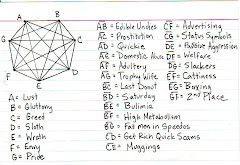 A B
G C
F D
E
A = Lust
B = Gluttony
C = Greed
D = Sloth
E = Wrath
F = Envy
G = Pride
AB = Edible Undies
AC = Prostitution
AD = Quickie
AE = Domestic Abuse
AF = Adultery
AG = Trophy Wife
BC = Last Donut
BD = Saturday
BE = Bulimia
BF = High Metabolism
BG = Fat men in Speedos
CD = Get Rich Quick Scams
CE = Muggings
CF = Advertising
CG = Status Symbols
DE = Passive Aggression
DF = Welfare
DG = Slackers
EF = Cattiness
EG = Boxing
GF = 2nd Place